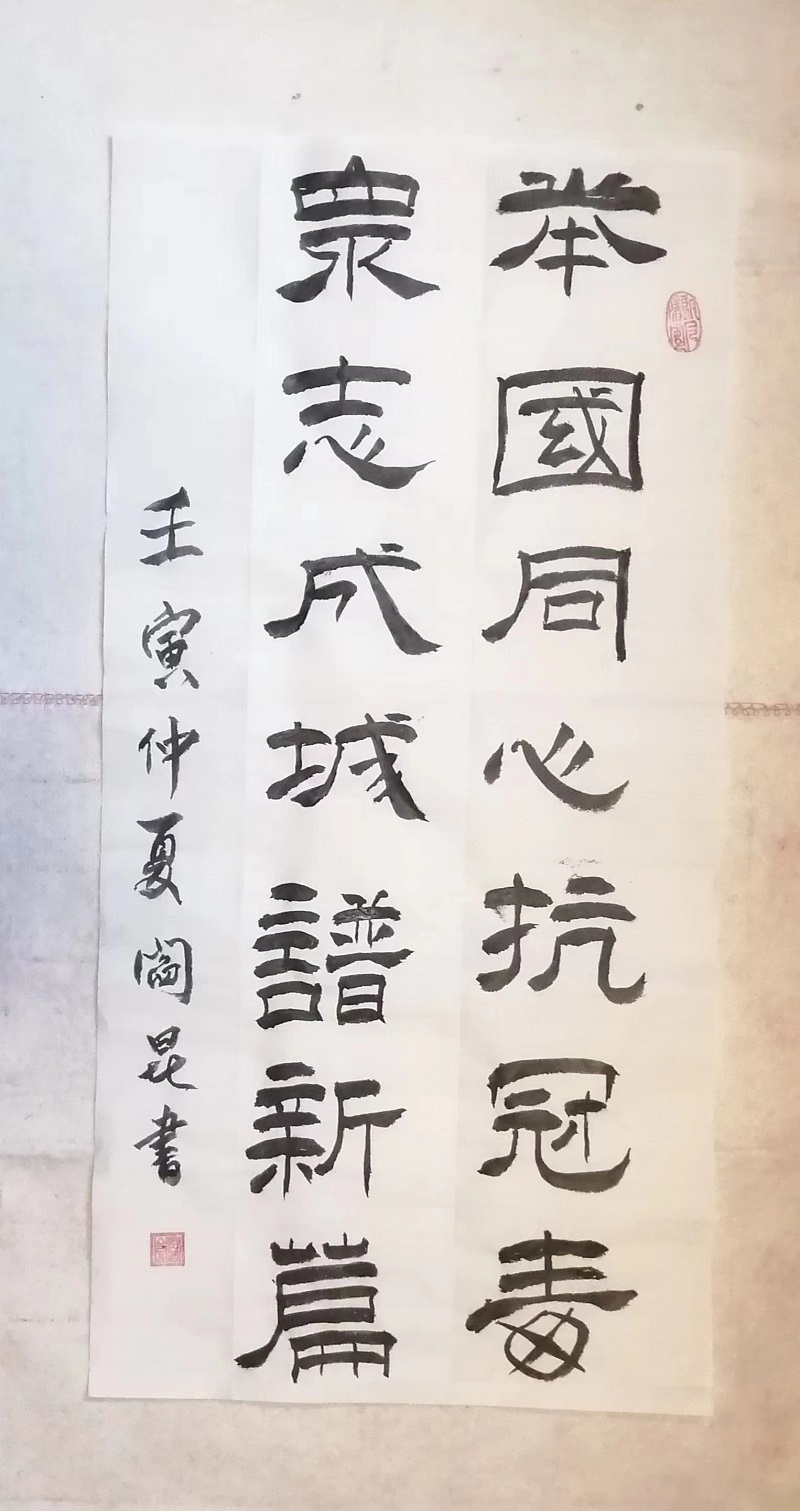 举國同心抗冠毒
眾志成城譜新篇
壬寅仲夏阎昆书